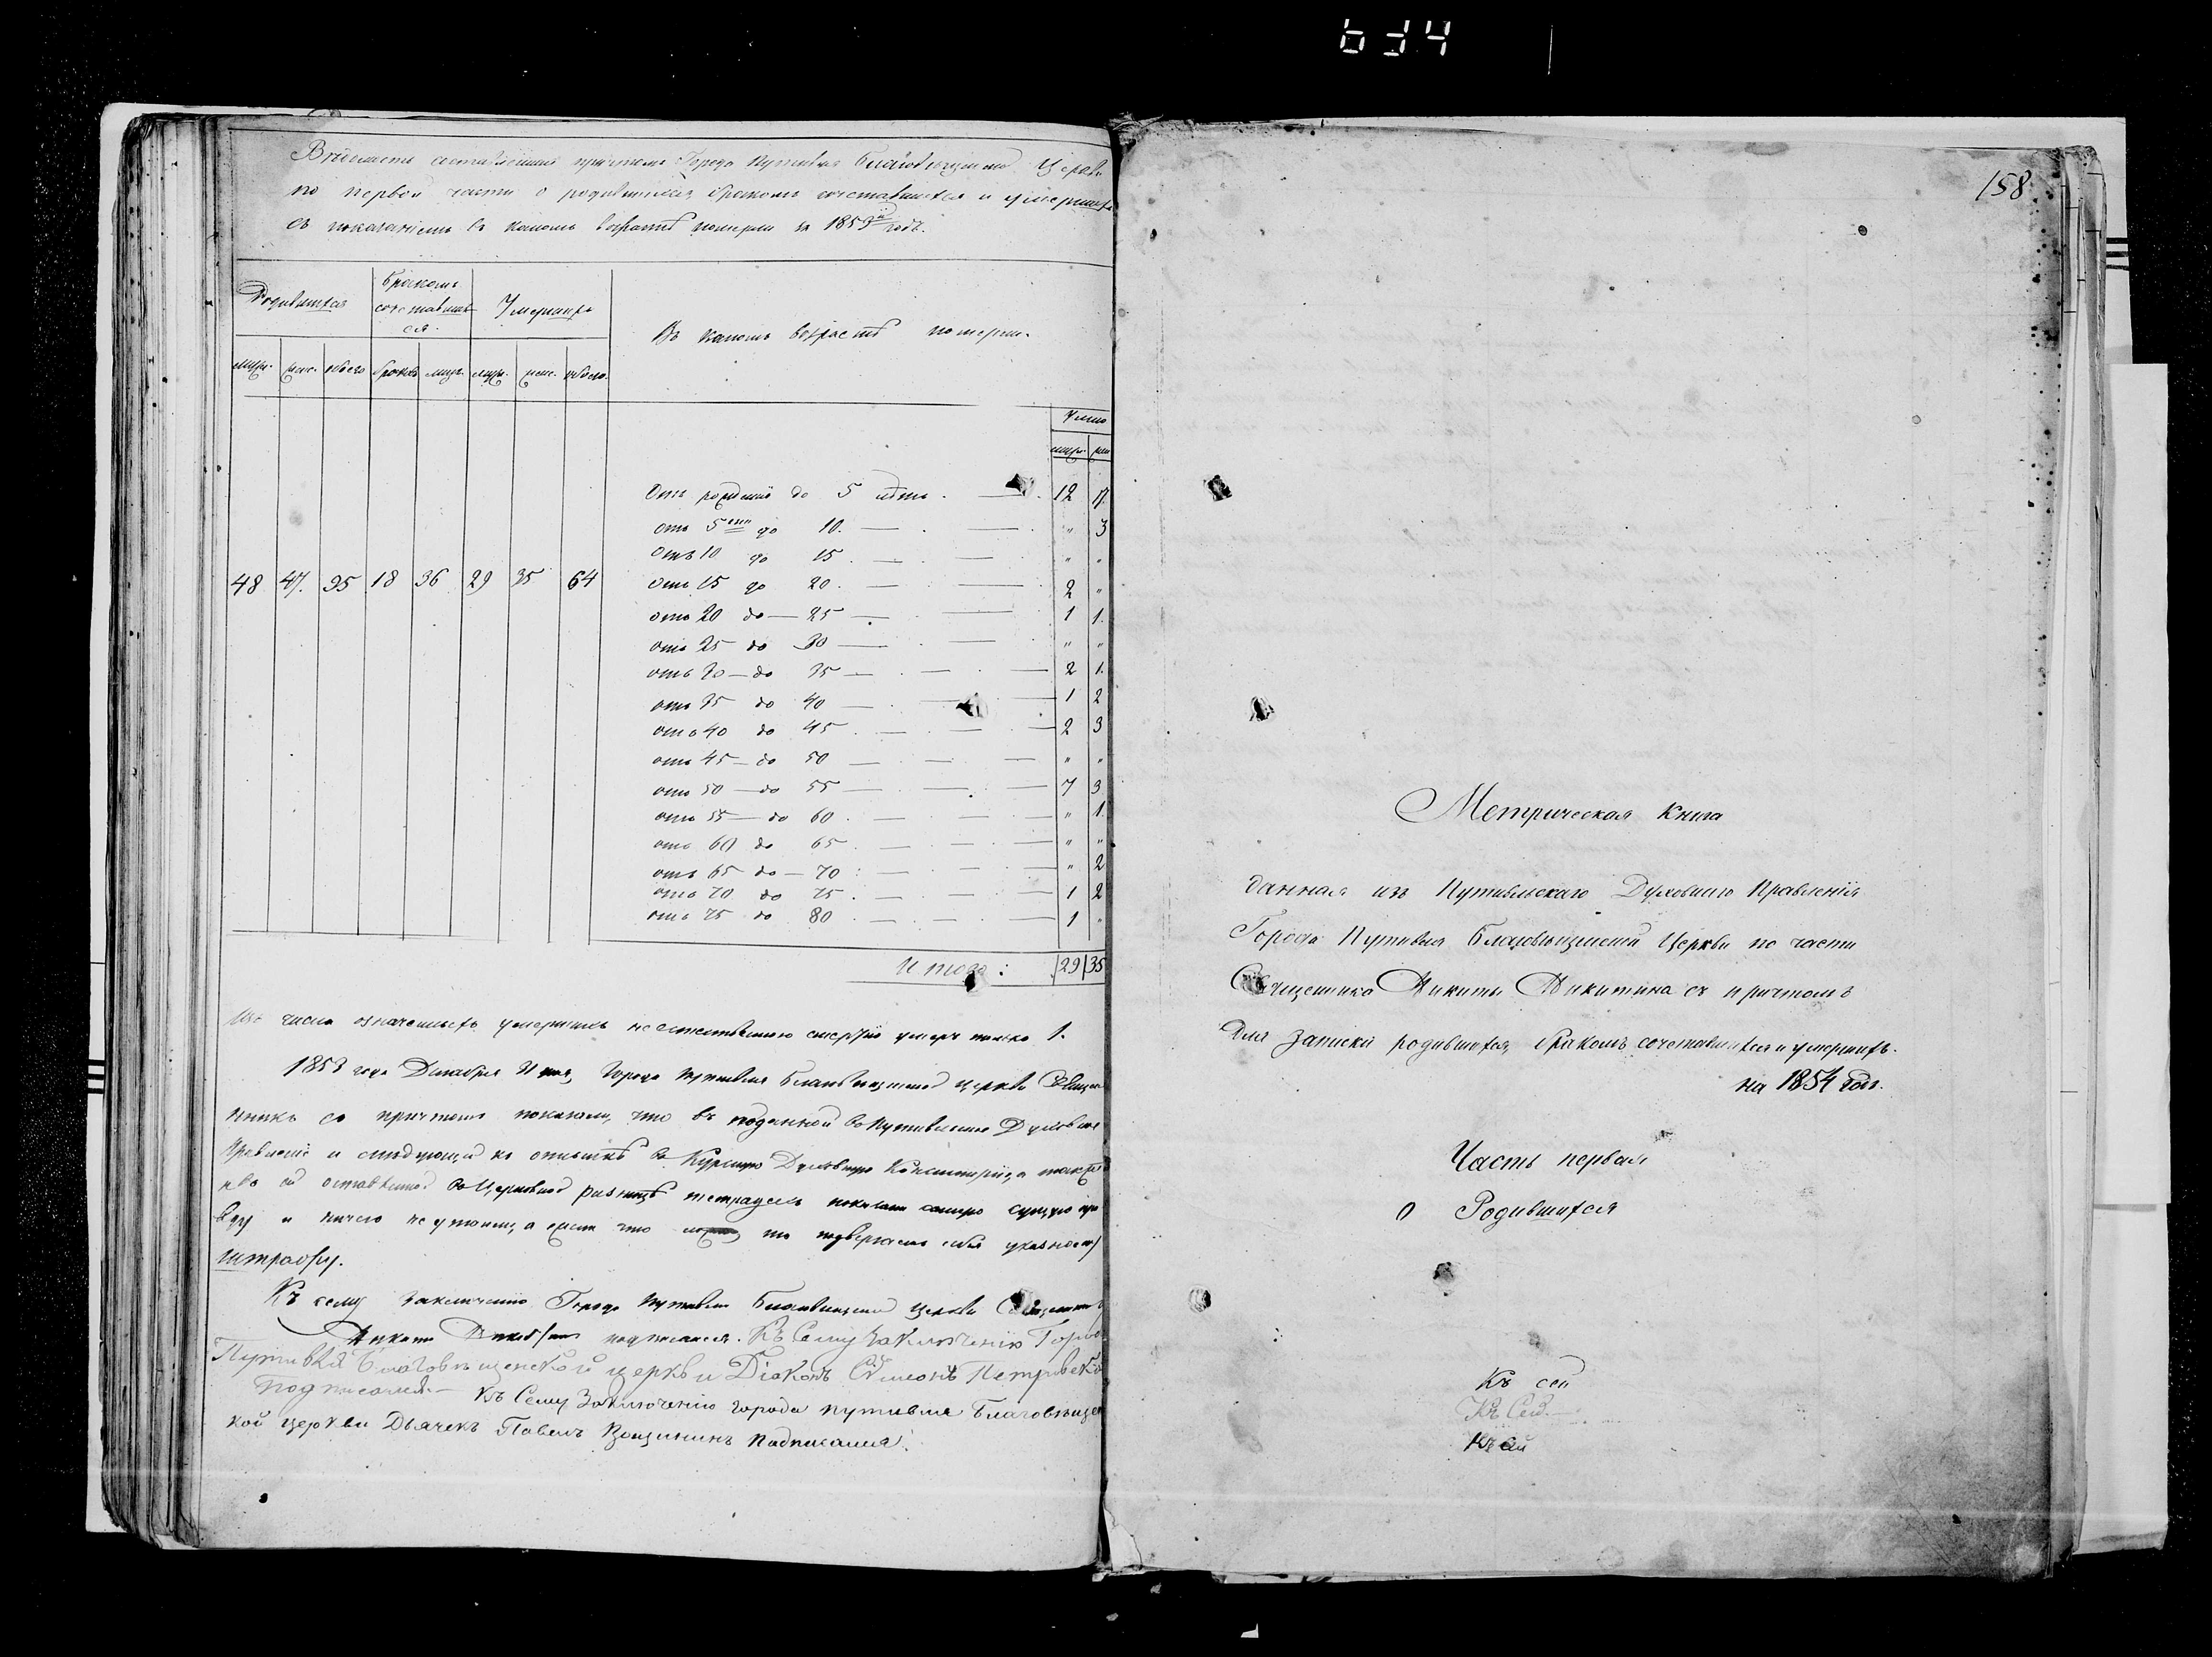 634
Вѣдомость составленная причтомъ Города Путивля Благовѣщенской Церкви
по первой части о родившихся, бракомъ сочетавшихся и умершихъ
съ показаніемъ въ какомъ возрастѣ померли за 1853й годъ.
Родившихся
Бракомъ
сочетавших
ся.
Умершихъ
Въ какомъ возрастѣ померли.
муж. жен. обоего браковъ лицъ. муж. жен. обоего.
Число
муж. жен
48 47. 95 18 36 29 35 64
Отъ рожденія до 5 лѣтъ. 12 17.
отъ 5ти до 10. " 3
отъ 10 до 15 " "
отъ 15 до 20. 2 "
отъ 20 до 25 1 1.
отъ 25 до 30 " "
отъ 30 до 35 2 1.
отъ 35 до 40 1 2
отъ 40 до 45 2 3
отъ 45 до 50 " "
отъ 50 до 55 7 3
отъ 55 до 60. " 1
отъ 60 до 65 " "
отъ 65 до 70 " 2
отъ 70 до 75 1 2
отъ 75 до 80 1 "
Итого: 29 35
Изъ числа означенныхъ умершихъ неестественною смертію умеръ только 1.
1853 года Декабря дня, Города Путивля Благовѣщенской церкви Священ
никъ со причтомъ показали, что въ поданной въ Путивльское Духовное
Правленіе и слѣдующей къ отсылкѣ въ Курскую Духовную Консисторію, а
оставленной въ Церковной ризницѣ тетрадехъ показали самую сущую пра
вду и ничего не утаили, а если что то подвергаемъ себя указному
штрафу.
Къ сему заключенію Города Путивля Благовѣщенской церкви Священникъ
Никита подписался. Къ Сему Заключенію Города
Путивля Благовѣщенской церкви Діаконъ Сѵмеонъ Петровск
подписался. Къ Сему Заключенію города Путивля Благовѣщенс
кой церкви Дьячекъ Павелъ подписался.
158
Метрическая Книга
данная изъ Путивльскаго Духовнаго Правленія
Города Путивля Благовѣщенской Церкви по части
Священника Никиты Никитина съ причтомъ
Для записки родившихся, бракомъ сочетавшихся и умершихъ.
на 1854 годъ.
Часть первая
О Родившихся
Къ сей
Къ Сей
Къ сей